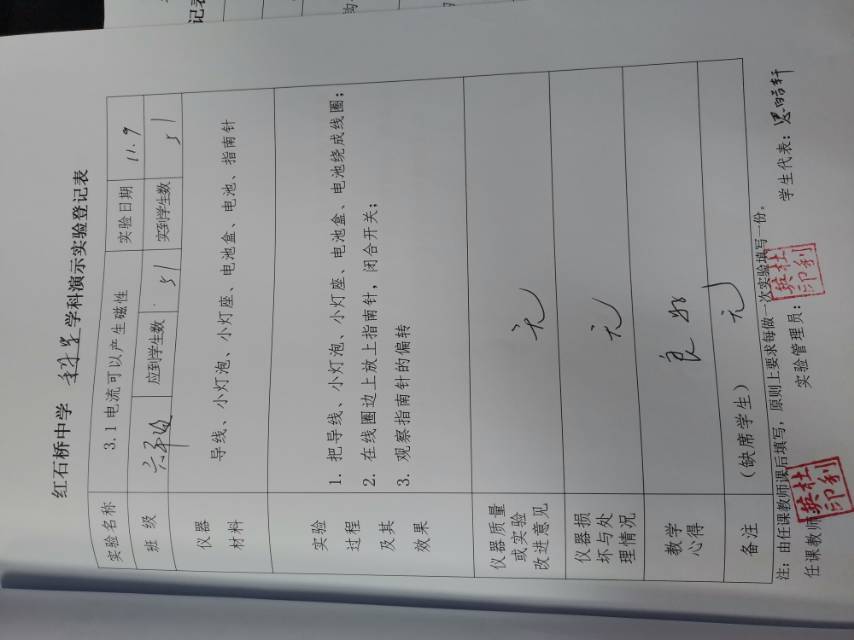 记表
红石桥中学 科学 学科演示实验登记表
实验名称 3.1电流可以产生磁性 实验日期 11.9
班 级 六年级 应到学生数 51 实到学生数 51
仪器
材料
导线、小灯泡、小灯座、电池盒、电池、指南针
实验
过程
及其
效果
1. 把导线、小灯泡、小灯座、电池盒、电池绕成线圈;
2. 在线圈边上放上指南针,闭合开关;
3. 观察指南针的偏转
仪器质量
或实验
改进意见
无
仪器损
坏与处
理情况
无
教学
心得
良好
备注 (缺席学生) 无
注:由任课教师课后填写,原则上要求每做一次实验填写一份。
任课教师 杜利英印 实验管理员: 杜利英印 学生代表: